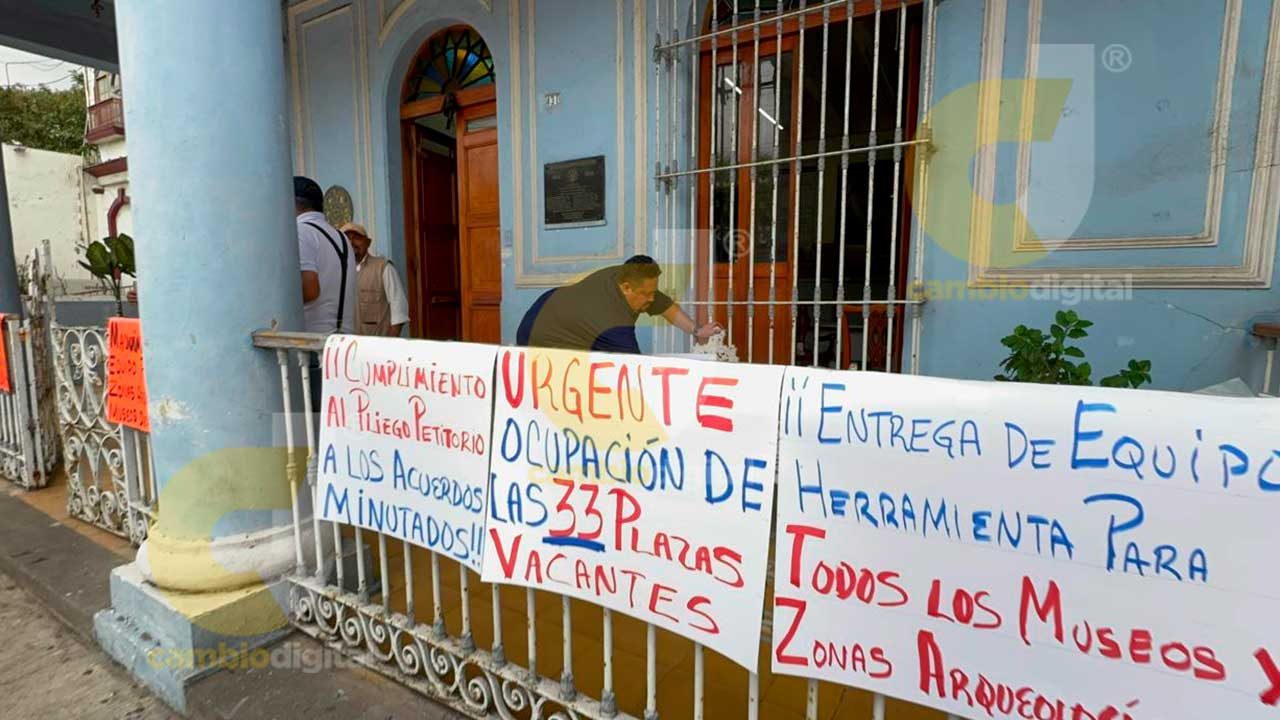 ¡¡CUMPLIMIENTO
AL PLIEGO PETITORIO
A LOS ACUERDOS
MINUTADOS!!
URGENTE
OCUPACIÓN DE
LAS 33 PLAZAS
VACANTES
¡¡ENTREGA DE EQUIPO
HERRAMIENTA PARA
TODOS LOS MUSEOS Y
ZONAS
EQUIPO
ZONAS
MUSEOS
cambiodigital
cambiodigital
®